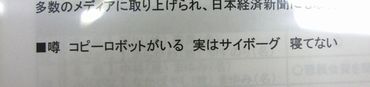 多数のメディアに取り上げられ、日本経済新聞に
■噂 コピーロボットがいる 実はサイボーグ 寝てない